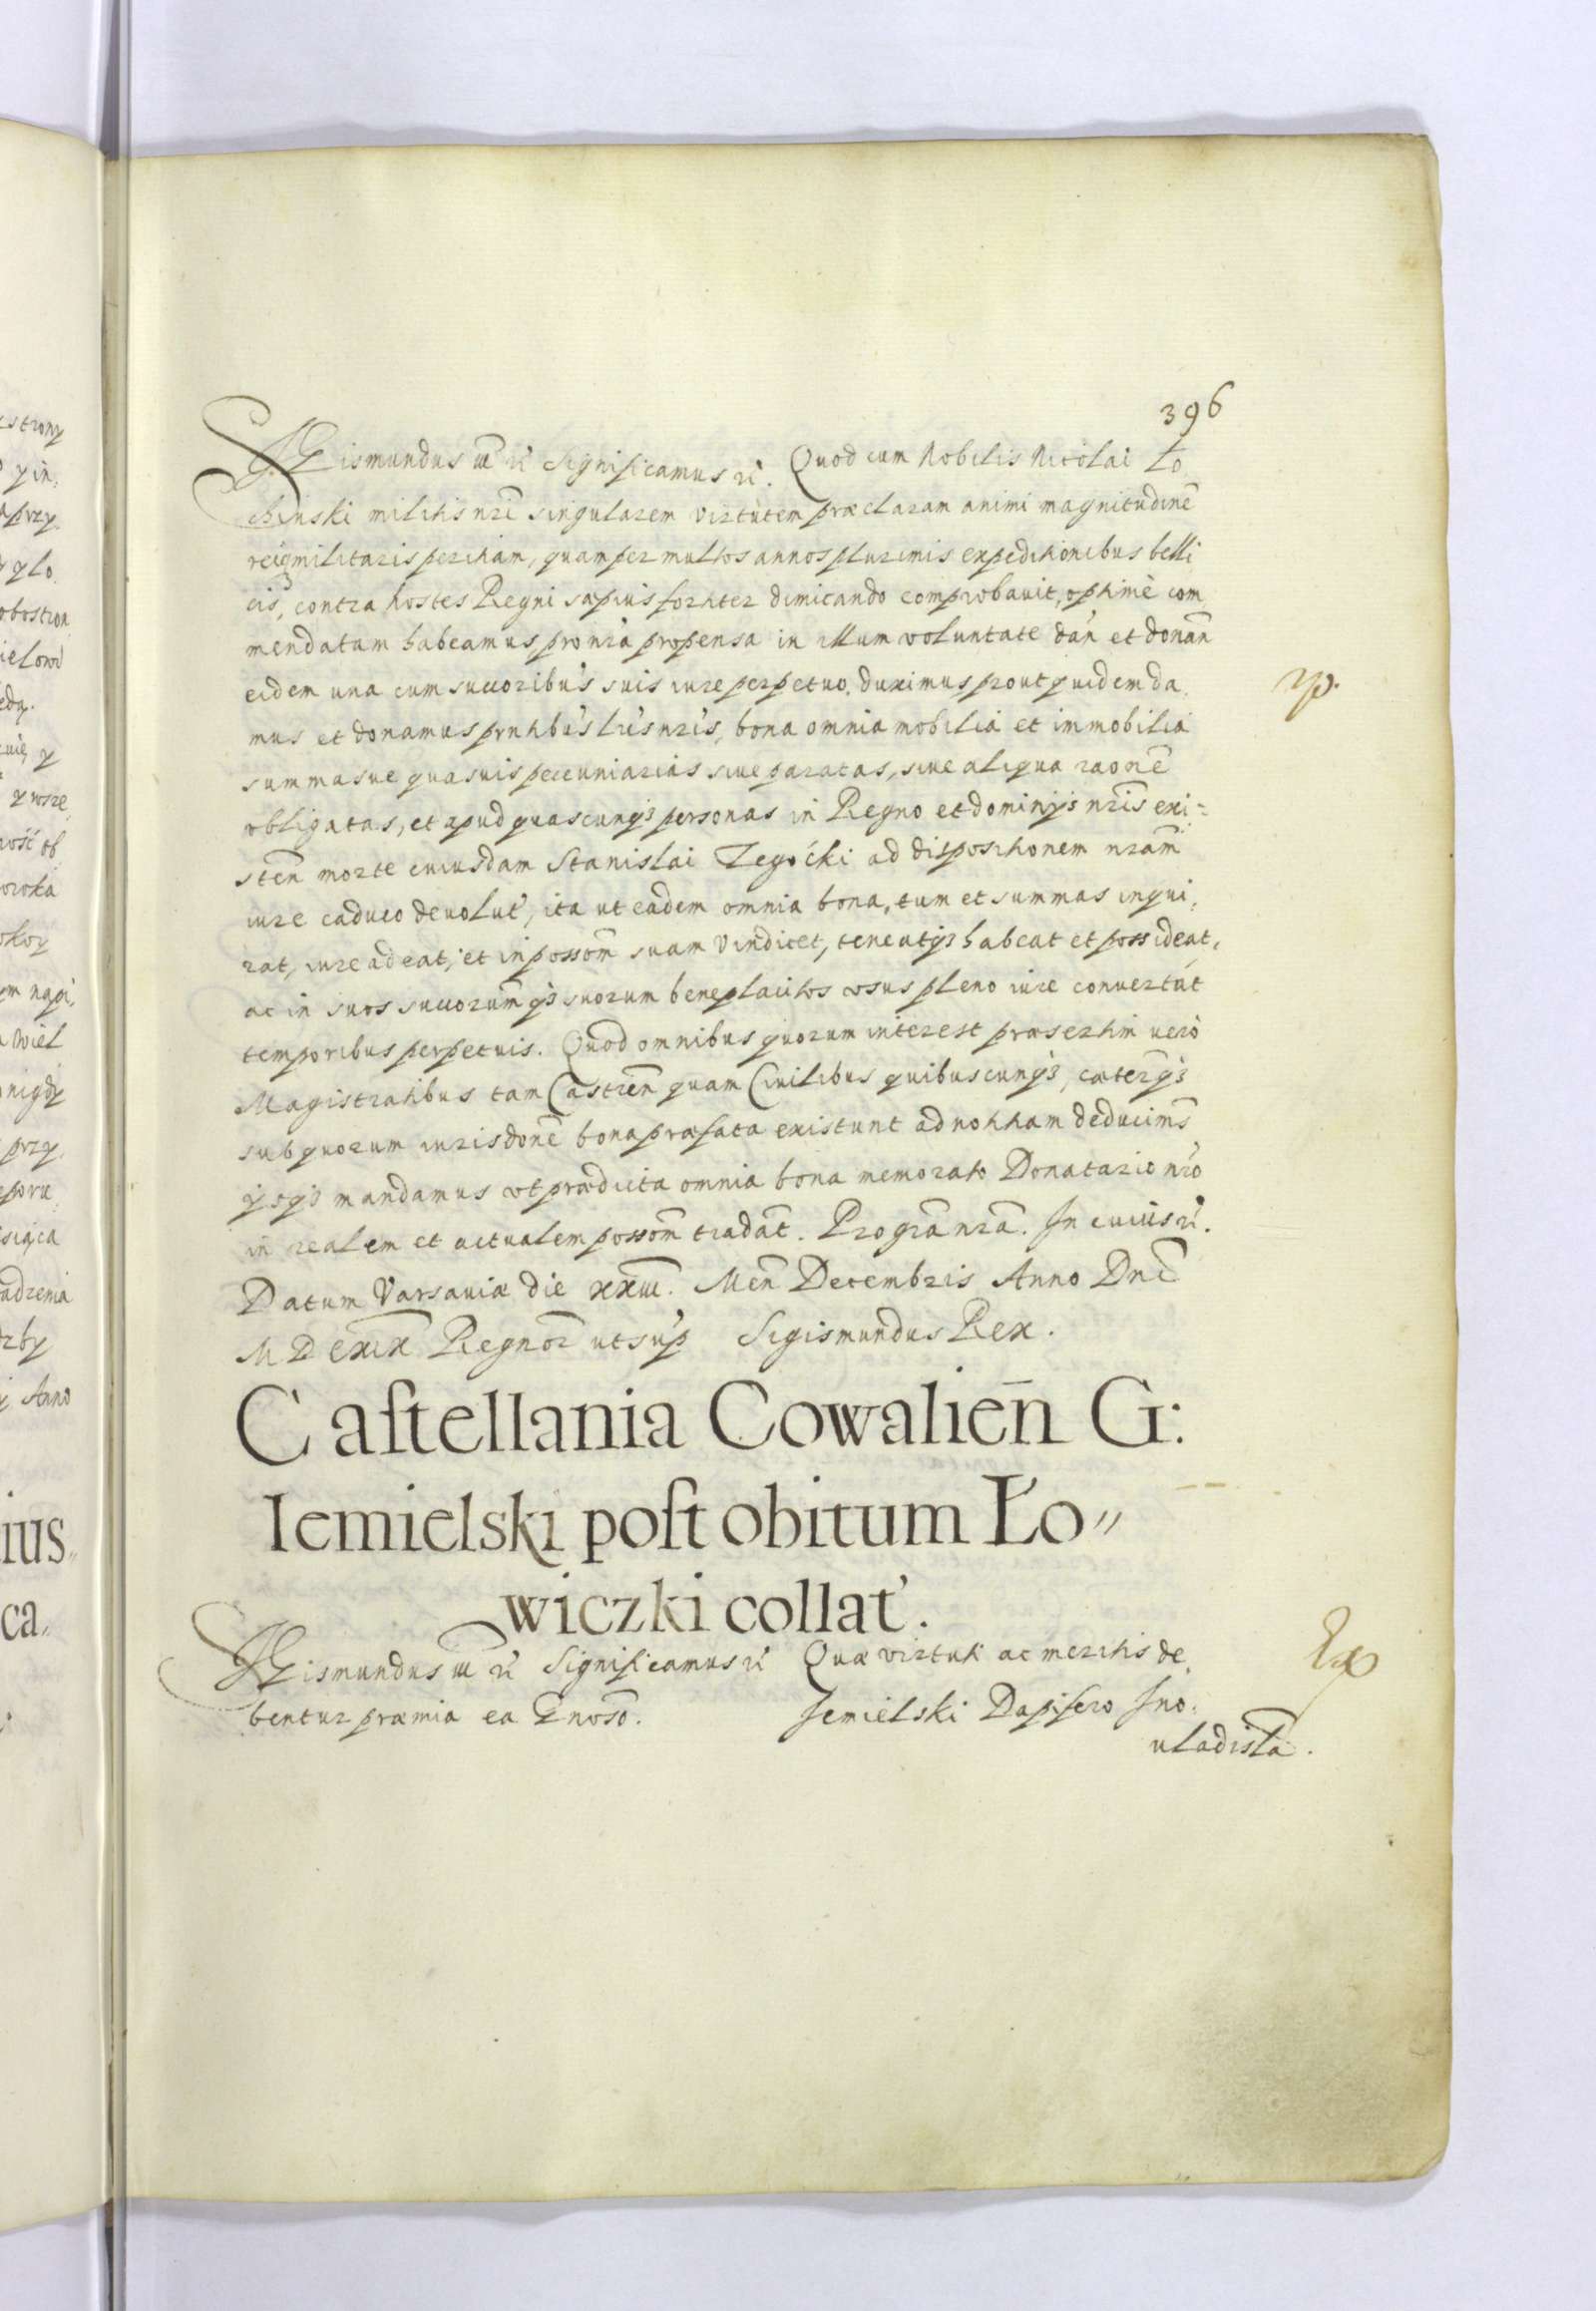 396
SIGismundus III rc̃ Significamus rc̃. Quod cum Nobilis Nicolai Lo
chinski militis nr̃i singularem virtutem præclaram animi magnitudinẽ
reiq3 militaris peritiam, quam per multos annos plurimis expeditionibus belli
cis, contra hostes Regni sæpius fortiter dimicando comprobavit, optimè com
mendatam habeamus, pro nr̃a propensa in illum voluntate dañ et donañ
eidem una cum succoribus suis iure perpetuo duximus prout quidem da
mus et donamus pñtibus lr̃is nr̃is, bona omnia mobilia et immobilia
summasue quasuis pecuniarias siue paratas, siue aliqua raonẽ
obligatas, et apud quascunq3 personas in Regno et dominijs nr̃is exi=
steñ morte cuiusdam Stanislai Zegocki ad dispositionem nr̃am
iure caduco deuolut', ita ut eadem omnia bona, tum et summas inqui,
rat, iure adeat, et in possom̃ suam vindicet, teneatq3 habeat et possideat,
ac in suos succorumq3 suorum beneplacitos usus pleno iure convertat
temporibus perpetuis. Quod omnibus quorum interest præsertim uerò
Magistratibus tam Castreñ quam Ciuilibus quibuscunq3, cæterisq3
sub quorum iurisdonẽ bona præfata existunt ad notitiam deducims̃
ijsq3 mandamus ut prædicta omnia bona memorato Donatario nr̃o
in realem et actualem possom̃ tradañt. Pro grã nr̃a. In cuius rc̃.
Datum Varsauiæ die XXIII. Meñ Decembris Anno Dnĩ
M D CXIX Regnor̃ ut sup̃ Sigismundus Rex.
Castellania Cowalieñ G:
Iemielski post obitum Ło"
wiczki collat'.
SIGismundus III rc̃ Significamus rc̃ Quæ virtuti ac meritis de,
bentur præmia ea Gnosõ. Jemielski Dapifero Jno,
uladisla.